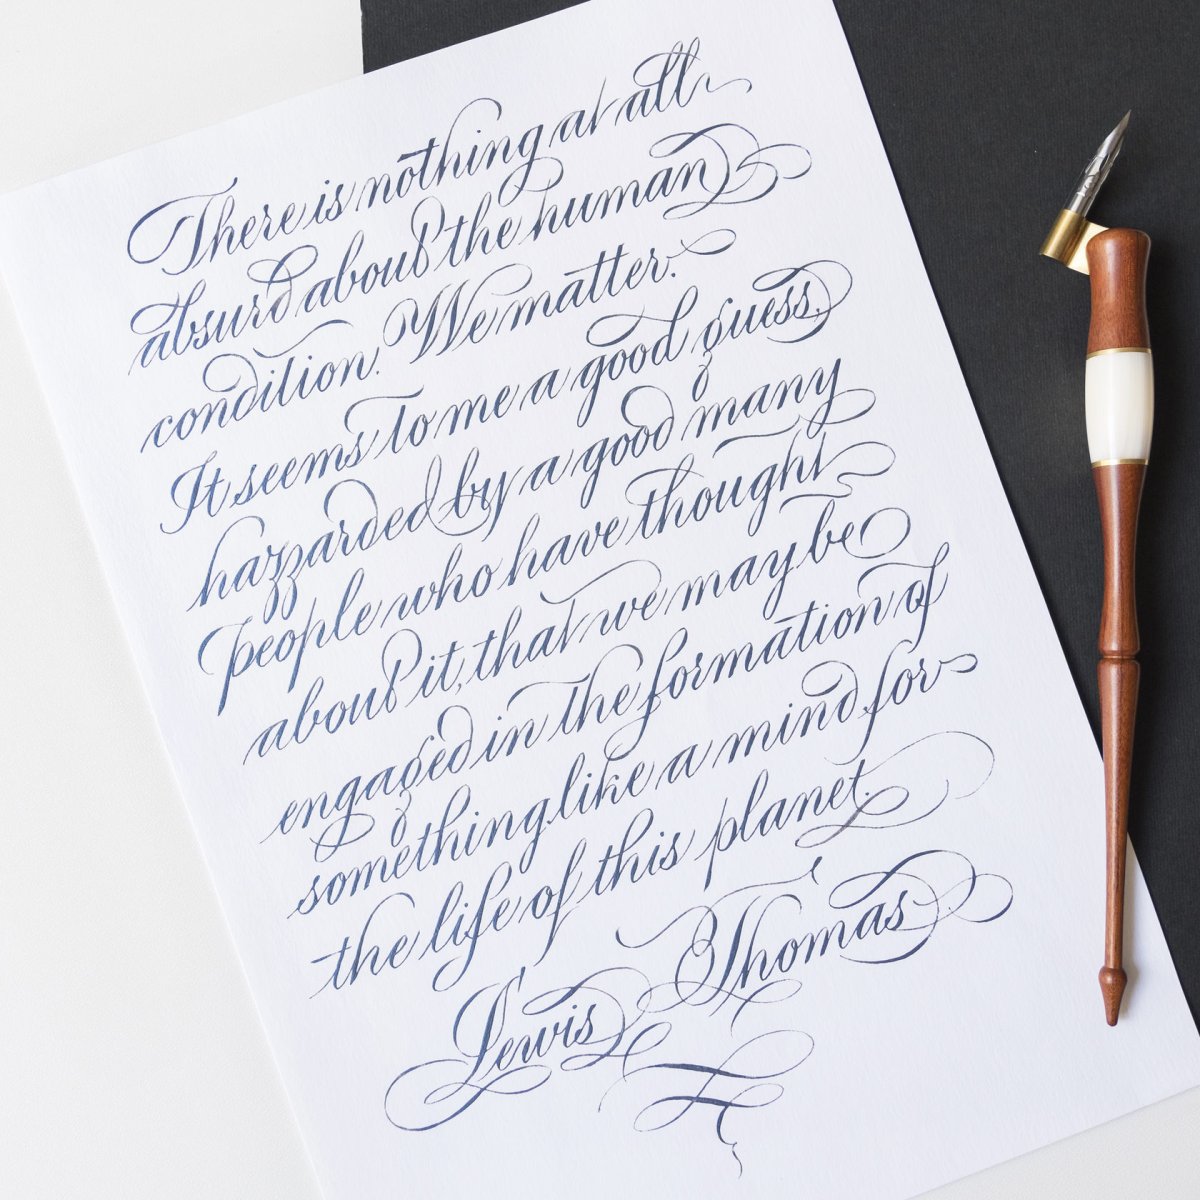 There is nothing at all
absurd about the human
condition. We matter.
It seems to me a good guess,
hazzarded by a good many
people who have thought
about it, that we may be
engaged in the formation of
something like a mind for
the life of this planet.
Lewis Thomas